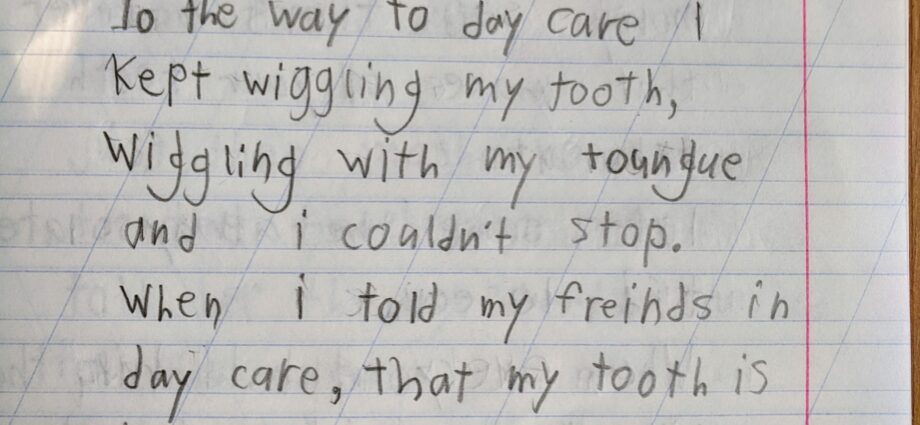 To the way to day care I
Kept wiggling my tooth,
Wiggling with my toungue
and i couldn't stop.
When i told my freinds in
day care, that my tooth is